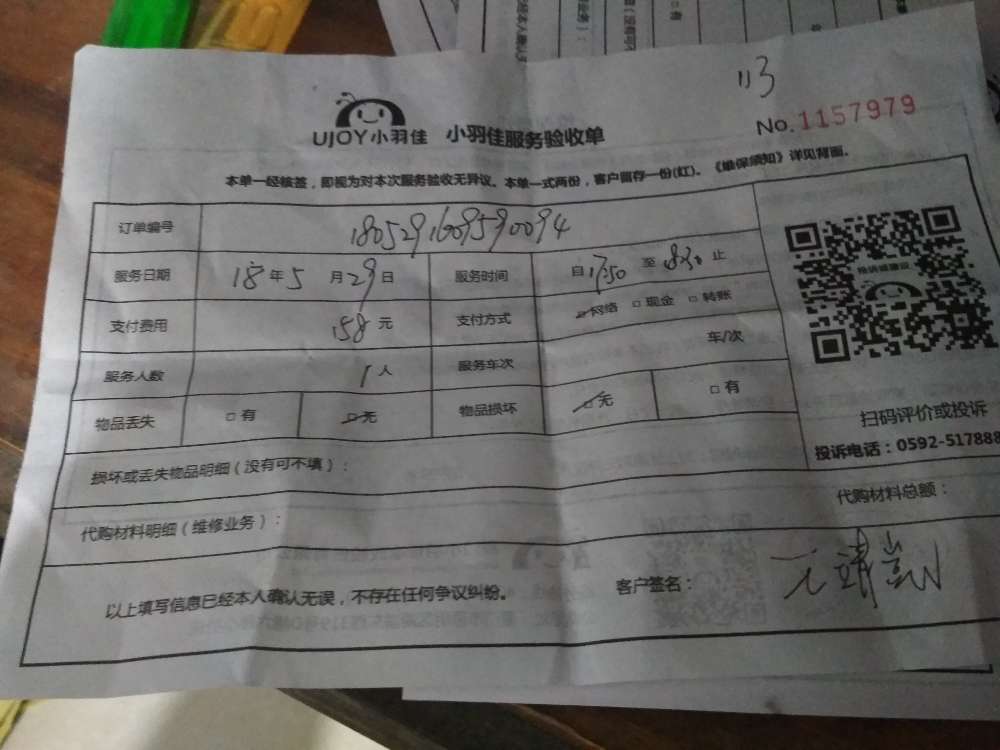 113
UJOY小羽佳 小羽佳服务验收单
No.1157979
本单一经核签，即视为对本次服务验收无异议。本单一式两份，客户留存一份(红)。《维保须知》详见背面。
订单编号 1805291609590094
服务日期 18年5月29日 服务时间 自17:50至18:30止
支付费用 158元 支付方式 □网络 □现金 □转账
服务人数 1人 服务车次 车/次
物品丢失 □有 □无 物品损坏 □无 □有
扫码评价或投诉
投诉电话：0592-517888
损坏或丢失物品明细（没有可不填）：
代购材料明细（维修业务）： 代购材料总额：
以上填写信息已经本人确认无误，不存在任何争议纠纷。 客户签名：